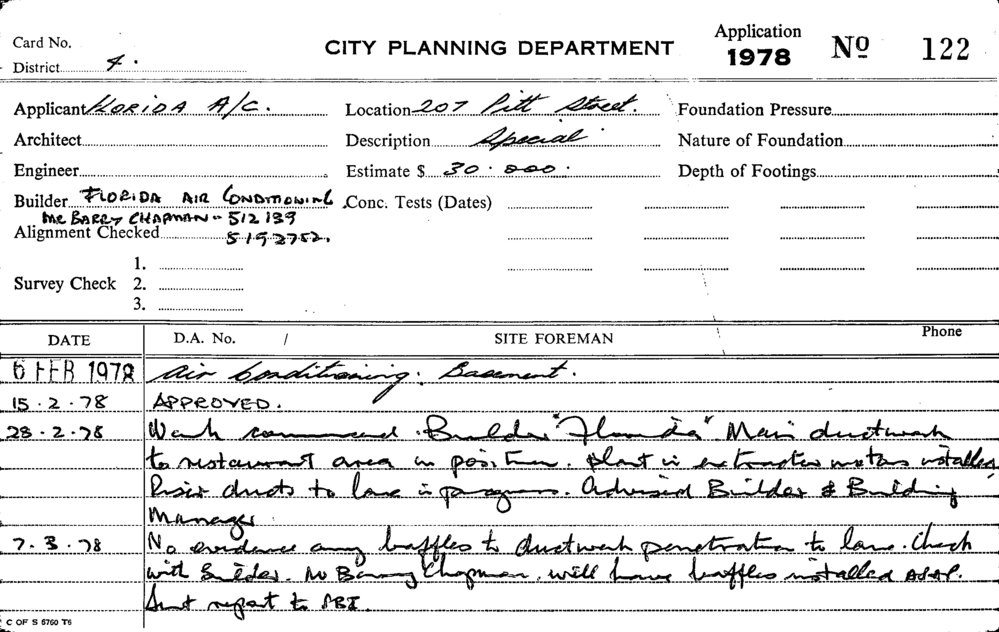 Card No.
District 4.
CITY PLANNING DEPARTMENT
Application
1978 No 122
Applicant FLORIDA A/C. Location 207 Pitt Street. Foundation Pressure
Architect Description Special Nature of Foundation
Engineer Estimate $ 30.000. Depth of Footings
Builder FLORIDA AIR CONDITIONING Conc. Tests (Dates)
MR BARRY CHAPMAN - 512 139
Alignment Checked 5192752.
1.
Survey Check 2.
3.
DATE D.A. No. / SITE FOREMAN Phone
6 FEB 1978 Air Conditioning. Basement.
15.2.78 APPROVED.
28.2.78 Work commenced. Builder "Florida" Main ductwork
to restaurant area in position. Plant in extractor motors installed
Riser ducts to lane in progress. Advised Builder & Building
Manager
7.3.78 No evidence any baffles to ductwork penetration to lane. Check
with Builder. Mr Barry Chapman. will have baffles installed ASAP.
Sent report to
C OF S 5760 T6